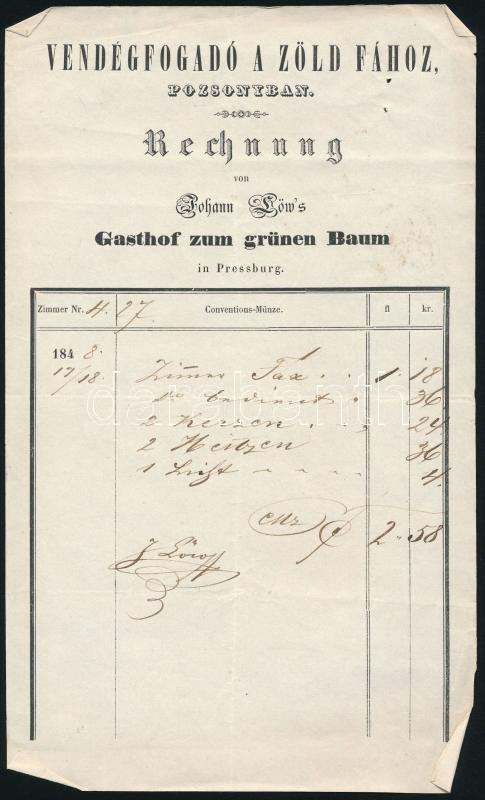 VENDÉGFOGADÓ A ZÖLD FÁHOZ,
POZSONYBAN.
Rechnung
von
Johann Löw's
Gasthof zum grünen Baum
in Pressburg.
Zimmer Nr. 4. 27. Conventions-Münze. fl kr.
1848.
17/18. Zimmer Tax . . 1. 18
do bedienst . 36
2 Kerzen . . . 24
2 Heitzen 36
1 Licht 4.
CMz f 2 „ 58
J Löw
darabanth.com